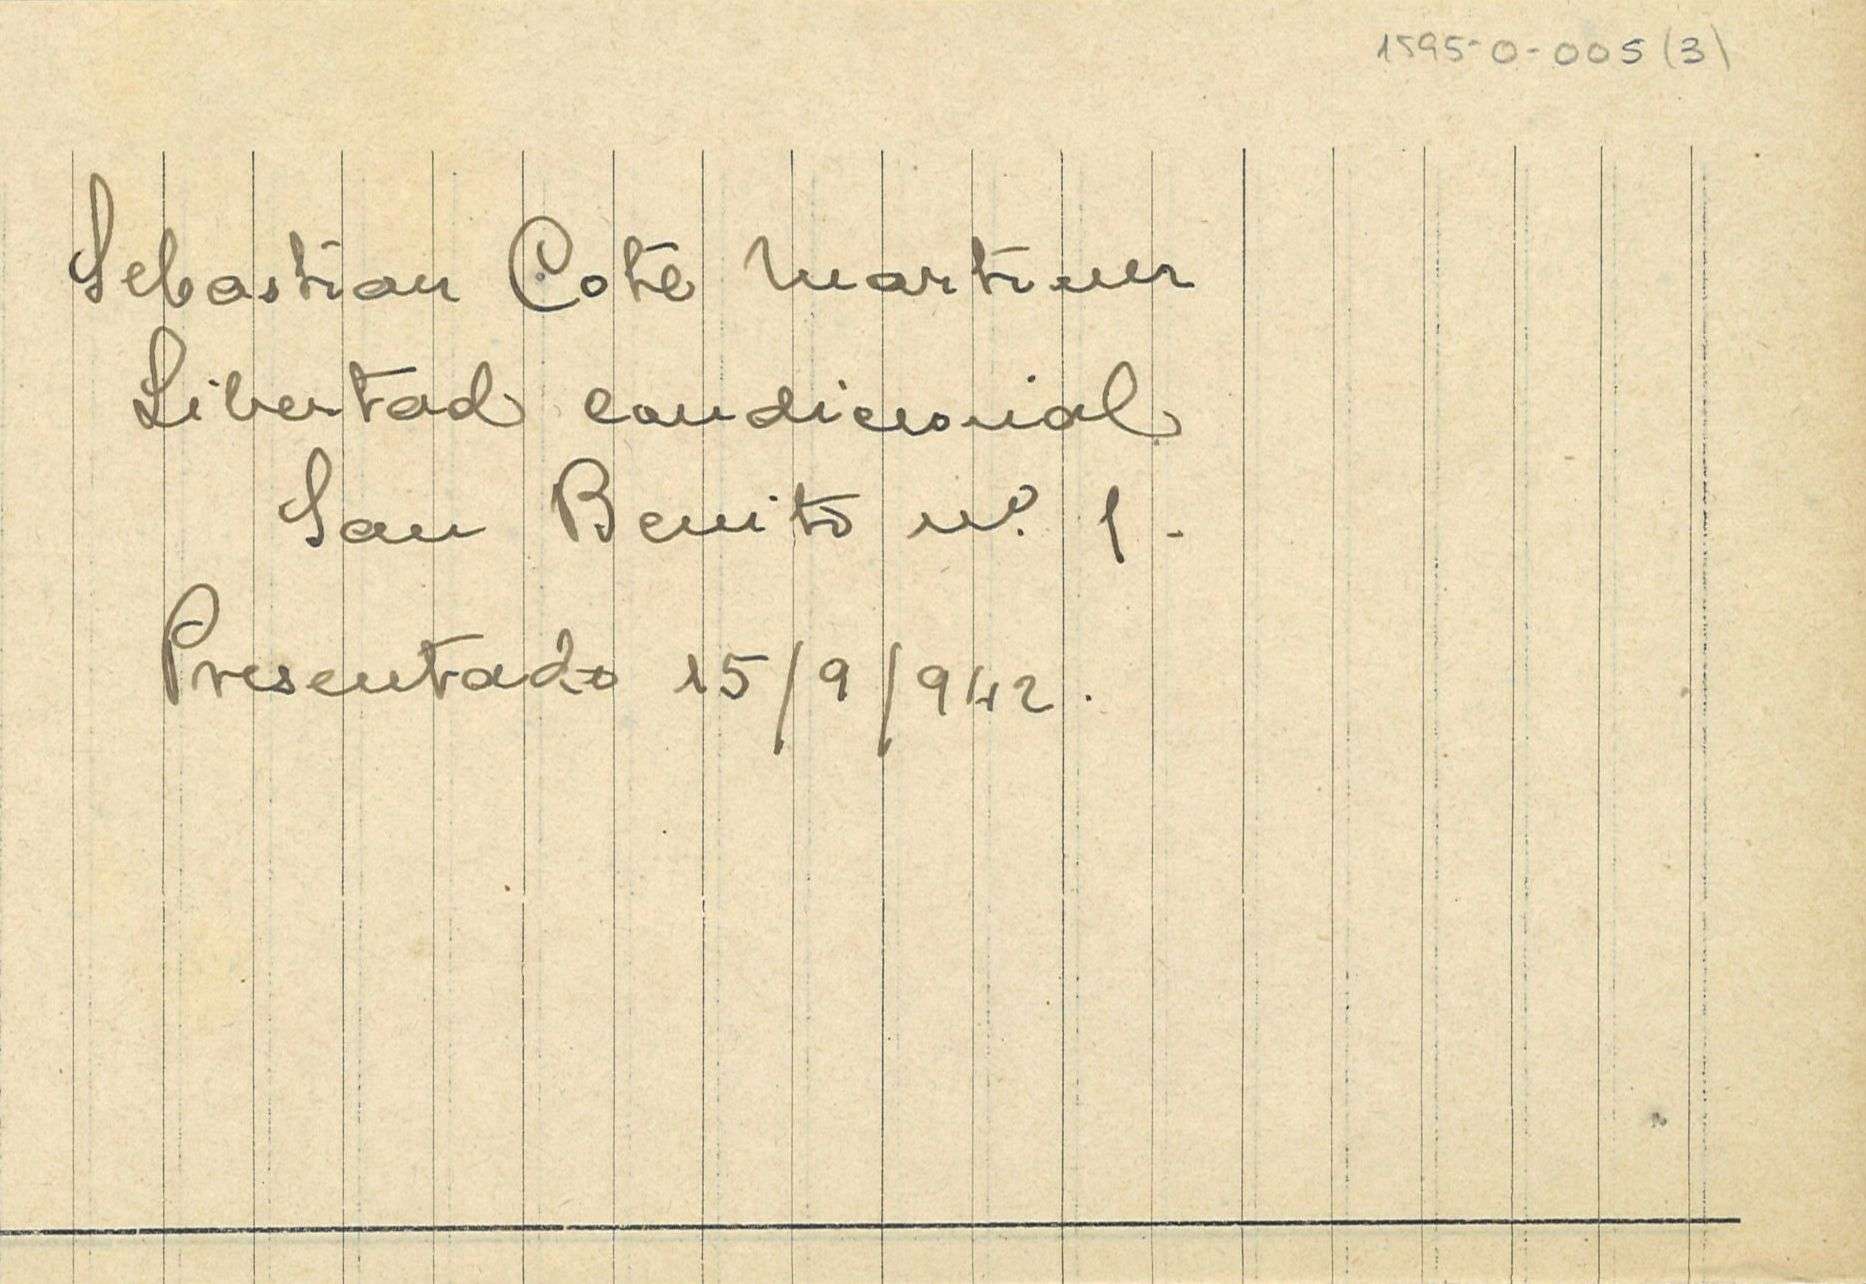 1595-0-005 (3)
Sebastian Cote Martinez
Libertad condicional
San Benito nº. 1.-
Presentado 15/9/942.